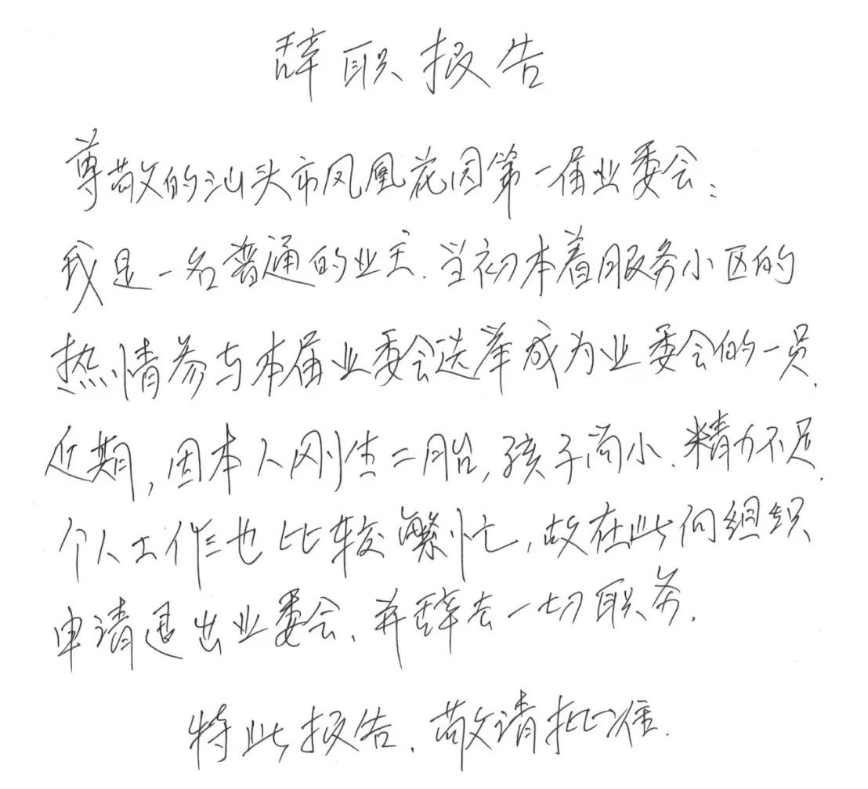 辞职报告
尊敬的汕头市凤凰花园第一届业委会：
我是一名普通的业主.当初本着服务小区的
热情参与本届业委会选举成为业委会的一员.
近期,因本人刚生二胎,孩子尚小.精力不足.
个人工作也比较繁忙,故在此向组织
申请退出业委会、并辞去一切职务.
特此报告.敬请批准.